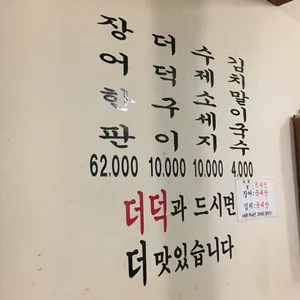 장어한판 62.000
더덕구이 10.000
수제소세지 10.000
김치말이국수 4.000
더덕과 드시면
더 맛있습니다
장어:국내산
김치:국내산